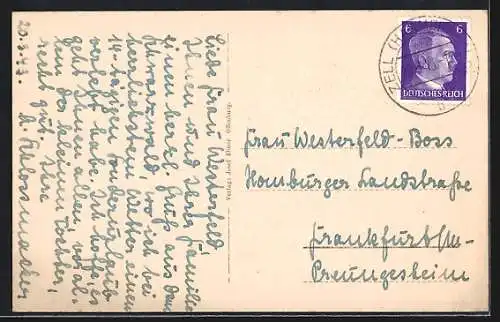 20.8.43.
Liebe Frau Westerfeld!
Ihnen und Ihrer Familie
einen herzl. Gruß aus dem
Schwarzwald, wo ich bei
herrlichstem Wetter einen
14-tägigen Sonderurlaub
verlebt habe. Ich hoffe, es
geht Ihnen allen, vor al-
lem der kleinen Tochter,
recht gut. Ihre
A. Schlossmacher
Verlag: Josef Offenburg.
6 6
DEUTSCHES REICH
ZELL
b
Frau Westerfeld-Boss
Homburger Landstraße
Frankfurt/M-
Preungesheim